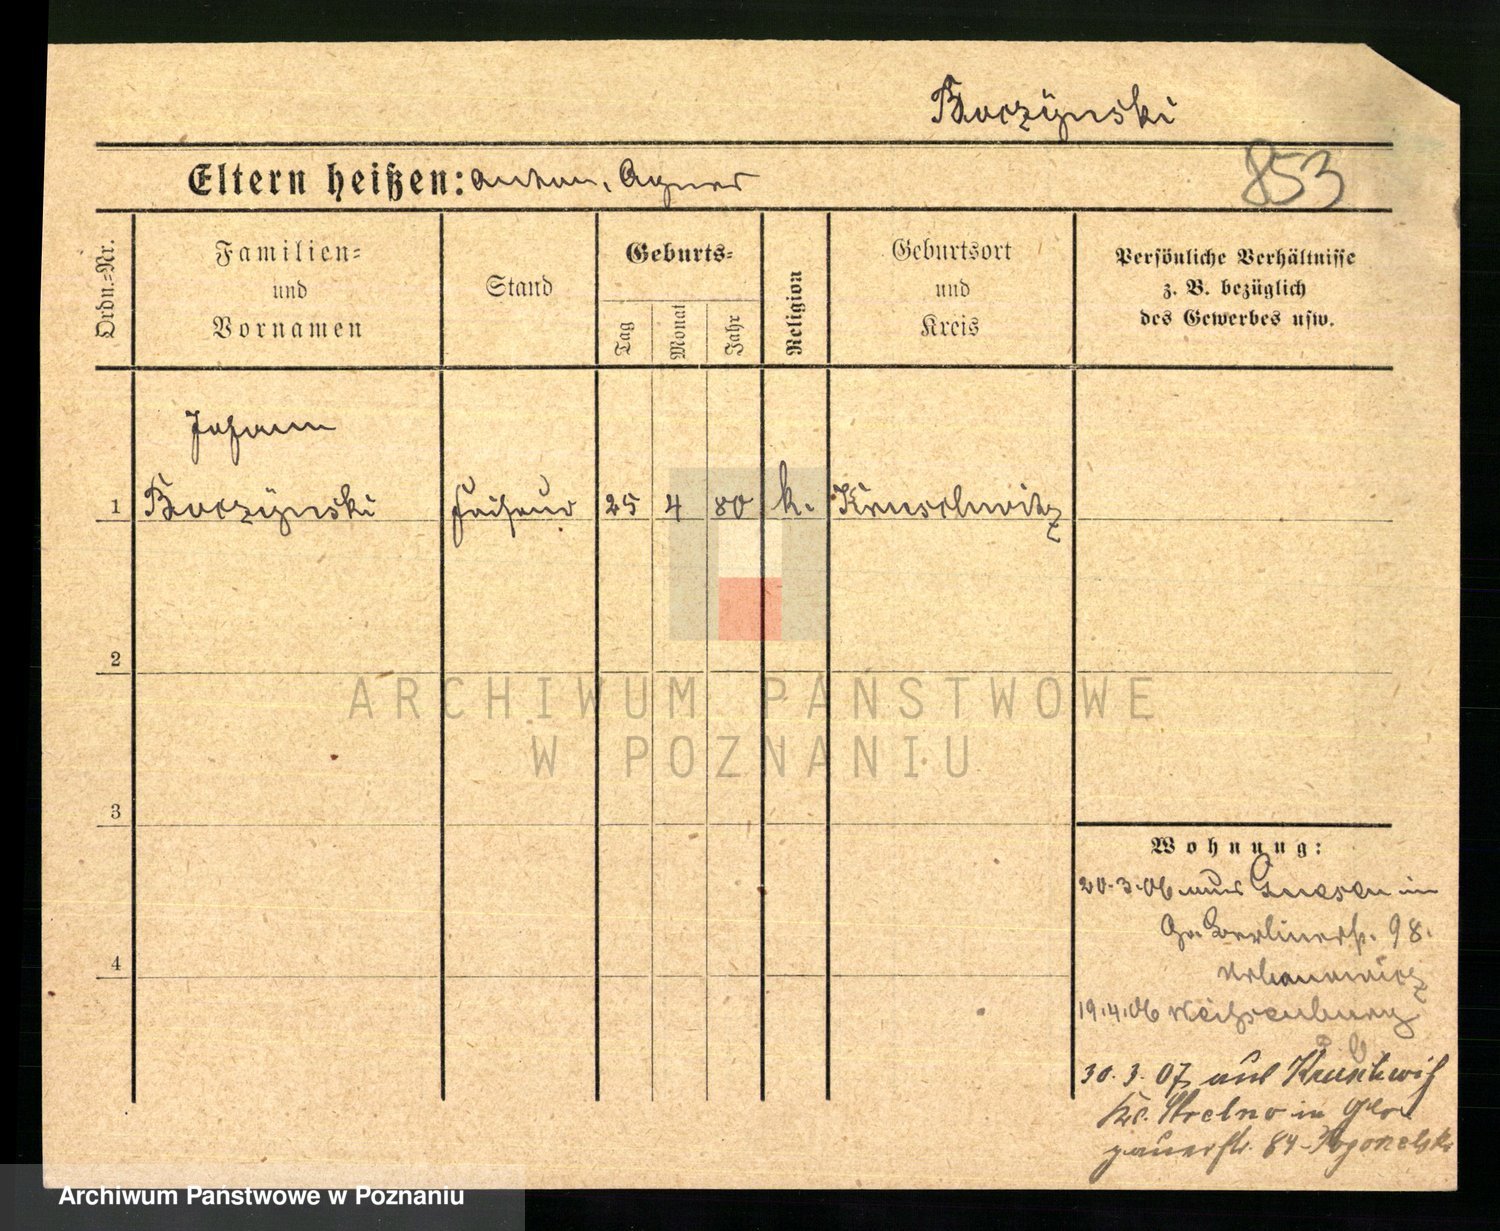 Boczÿnski
Eltern heißen: Anton, Agnes
853
Ordn.-Nr.
Familien-
und
Vornamen
Stand
Geburts-
Tag
Monat
Jahr
Religion
Geburtsort
und
Kreis
Persönliche Verhältnisse
z. B. bezüglich
des Gewerbes usw.
Johann
1 Boczÿnski Friseur 25 4 80 k. Kruschwitz
2
ARCHIWUM PAŃSTWOWE
W POZNANIU
3
Wohnung:
20.3.06 aus Gnesen in
Berlinerstr. 98.
4
Urbanowicz
19.4.06 Weißenburg
30.3.07 aus Kruschwitz
Kr. Strelno in Glo-
gauerstr. 84
Archiwum Państwowe w Poznaniu